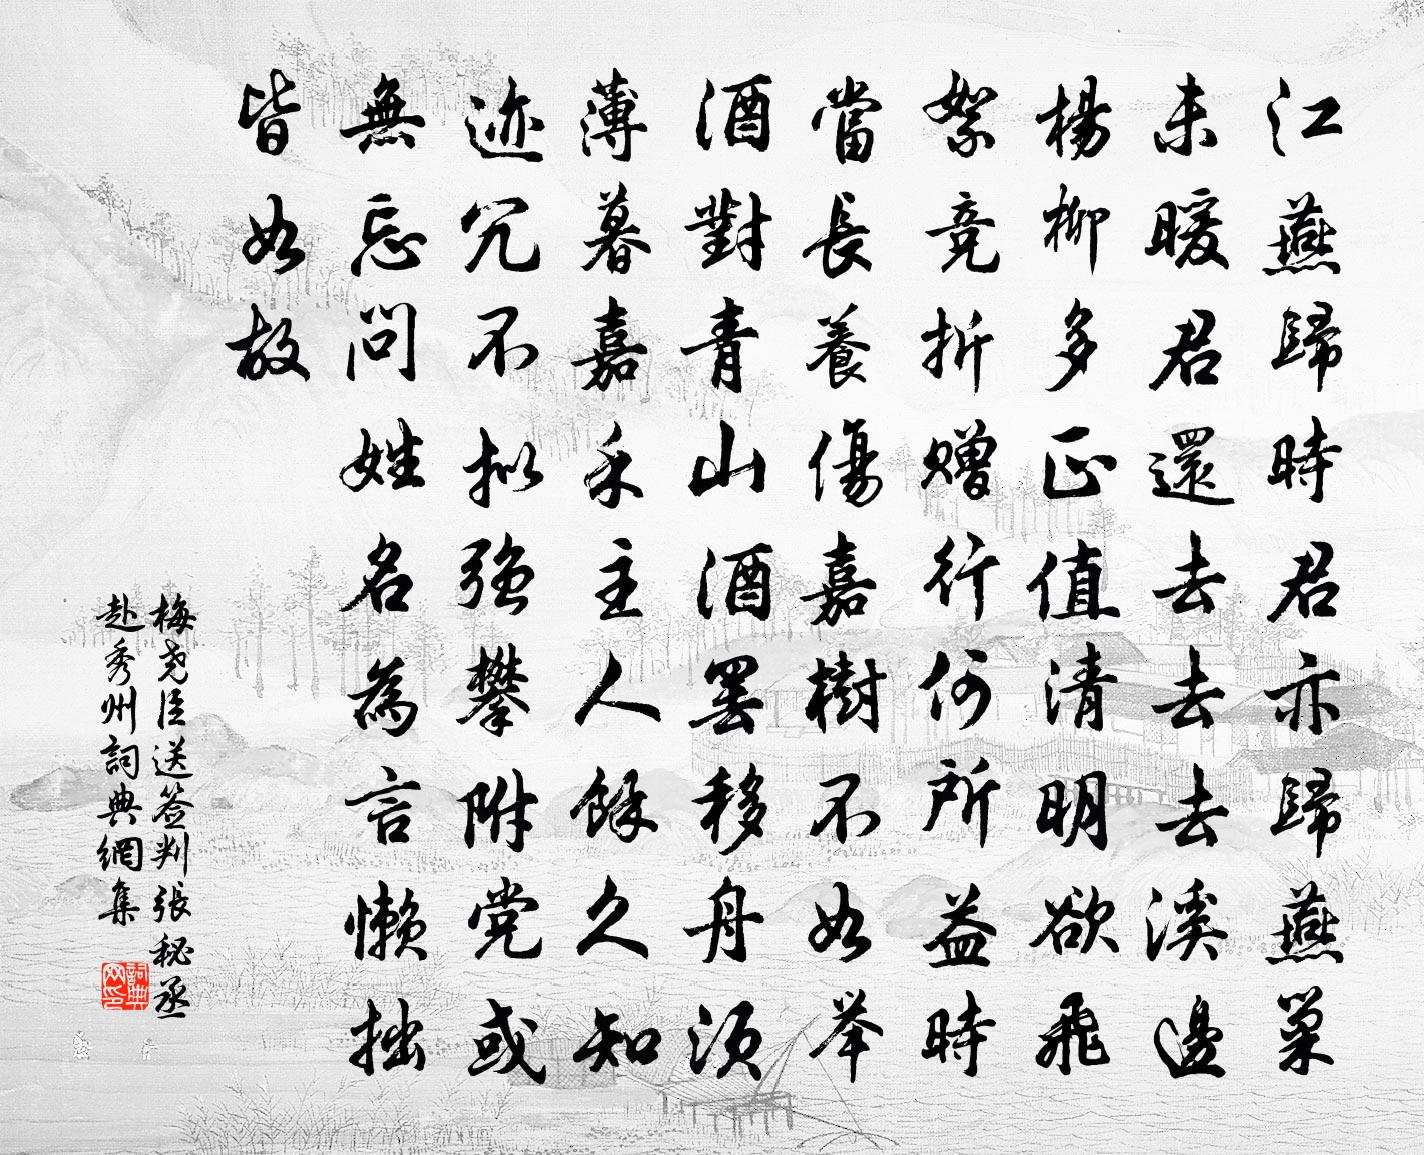 江燕歸時君亦歸燕巢
未暖君還去去去溪邊
楊柳多正值清明欲飛
絮競折贈行何所益時
當長養傷嘉樹不如举
酒對青山酒罢移舟须
薄暮嘉禾主人餘久知
迹冗不拟强攀附党或
無忘問姓名為言懒拙
皆如故
梅堯臣送签判張秘丞
赴秀州詞典網集
詞典网印